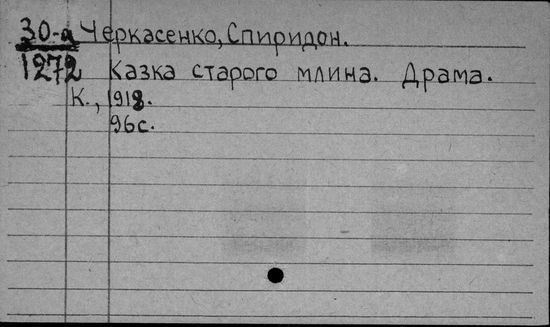 30-а Черкасенко, Спиридон.
1272 Казка старого млина. Драма.
К., 1918.
96с.